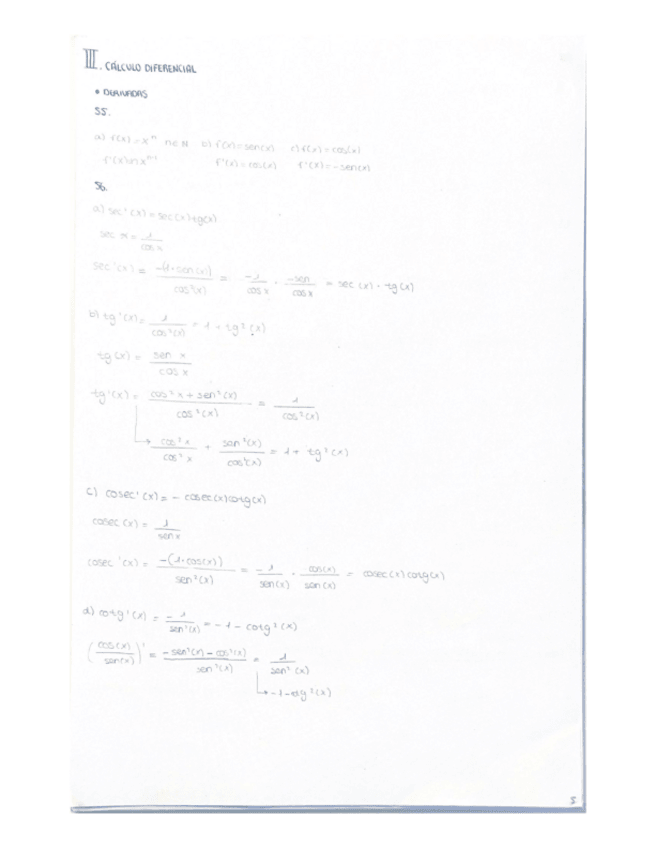 III. CÁLCULO DIFERENCIAL
• DERIVADAS
55.
a) f(x) = x^n n∈N b) f(x) = sen(x) c) f(x) = cos(x)
f'(x) n x^{n-1} f'(x) = cos(x) f'(x) = -sen(x)
56.
a) sec'(x) = sec(x) tg(x)
sec x = 1/cos x
sec'(x) = -(1·sen(x))/cos²(x) = -1/cos x · -sen/cos x = sec(x) · tg(x)
b) tg'(x) = 1/cos²(x) = 1 + tg²(x)
tg(x) = sen x/cos x
tg'(x) = cos²x + sen²(x)/cos²(x) = 1/cos²(x)
↳ cos²x/cos²x + sen²(x)/cos²(x) = 1 + tg²(x)
c) cosec'(x) = - cosec(x) cotg(x)
cosec(x) = 1/sen x
cosec'(x) = -(1·cos(x))/sen²(x) = -1/sen(x) · cos(x)/sen(x) = cosec(x) cotg(x)
d) cotg'(x) = -1/sen²(x) = -1 - cotg²(x)
(cos(x)/sen(x))' = -sen²(x) - cos²(x)/sen²(x) = 1/sen²(x)
↳ -1-ctg²(x)